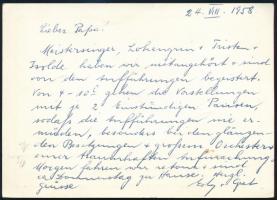 24. VIII. 1958
Liebes Papa!
Meistersinger, Lohengrin + Tristan +
Isolde haben wir mitangehört + sind
von den Aufführungen begeistert.
Von 4 - 10 gehen die Vorstellungen
mit je 2 einstündigen Pausen,
sodaß die Aufführungen nie er-
müden, besonders bei den glänzen-
den Besetzungen + großem Orchester +
einer traumhaften Aufmachung.
Morgen fahren wir retour + sind
zu Hause. Herzl.
Grüsse